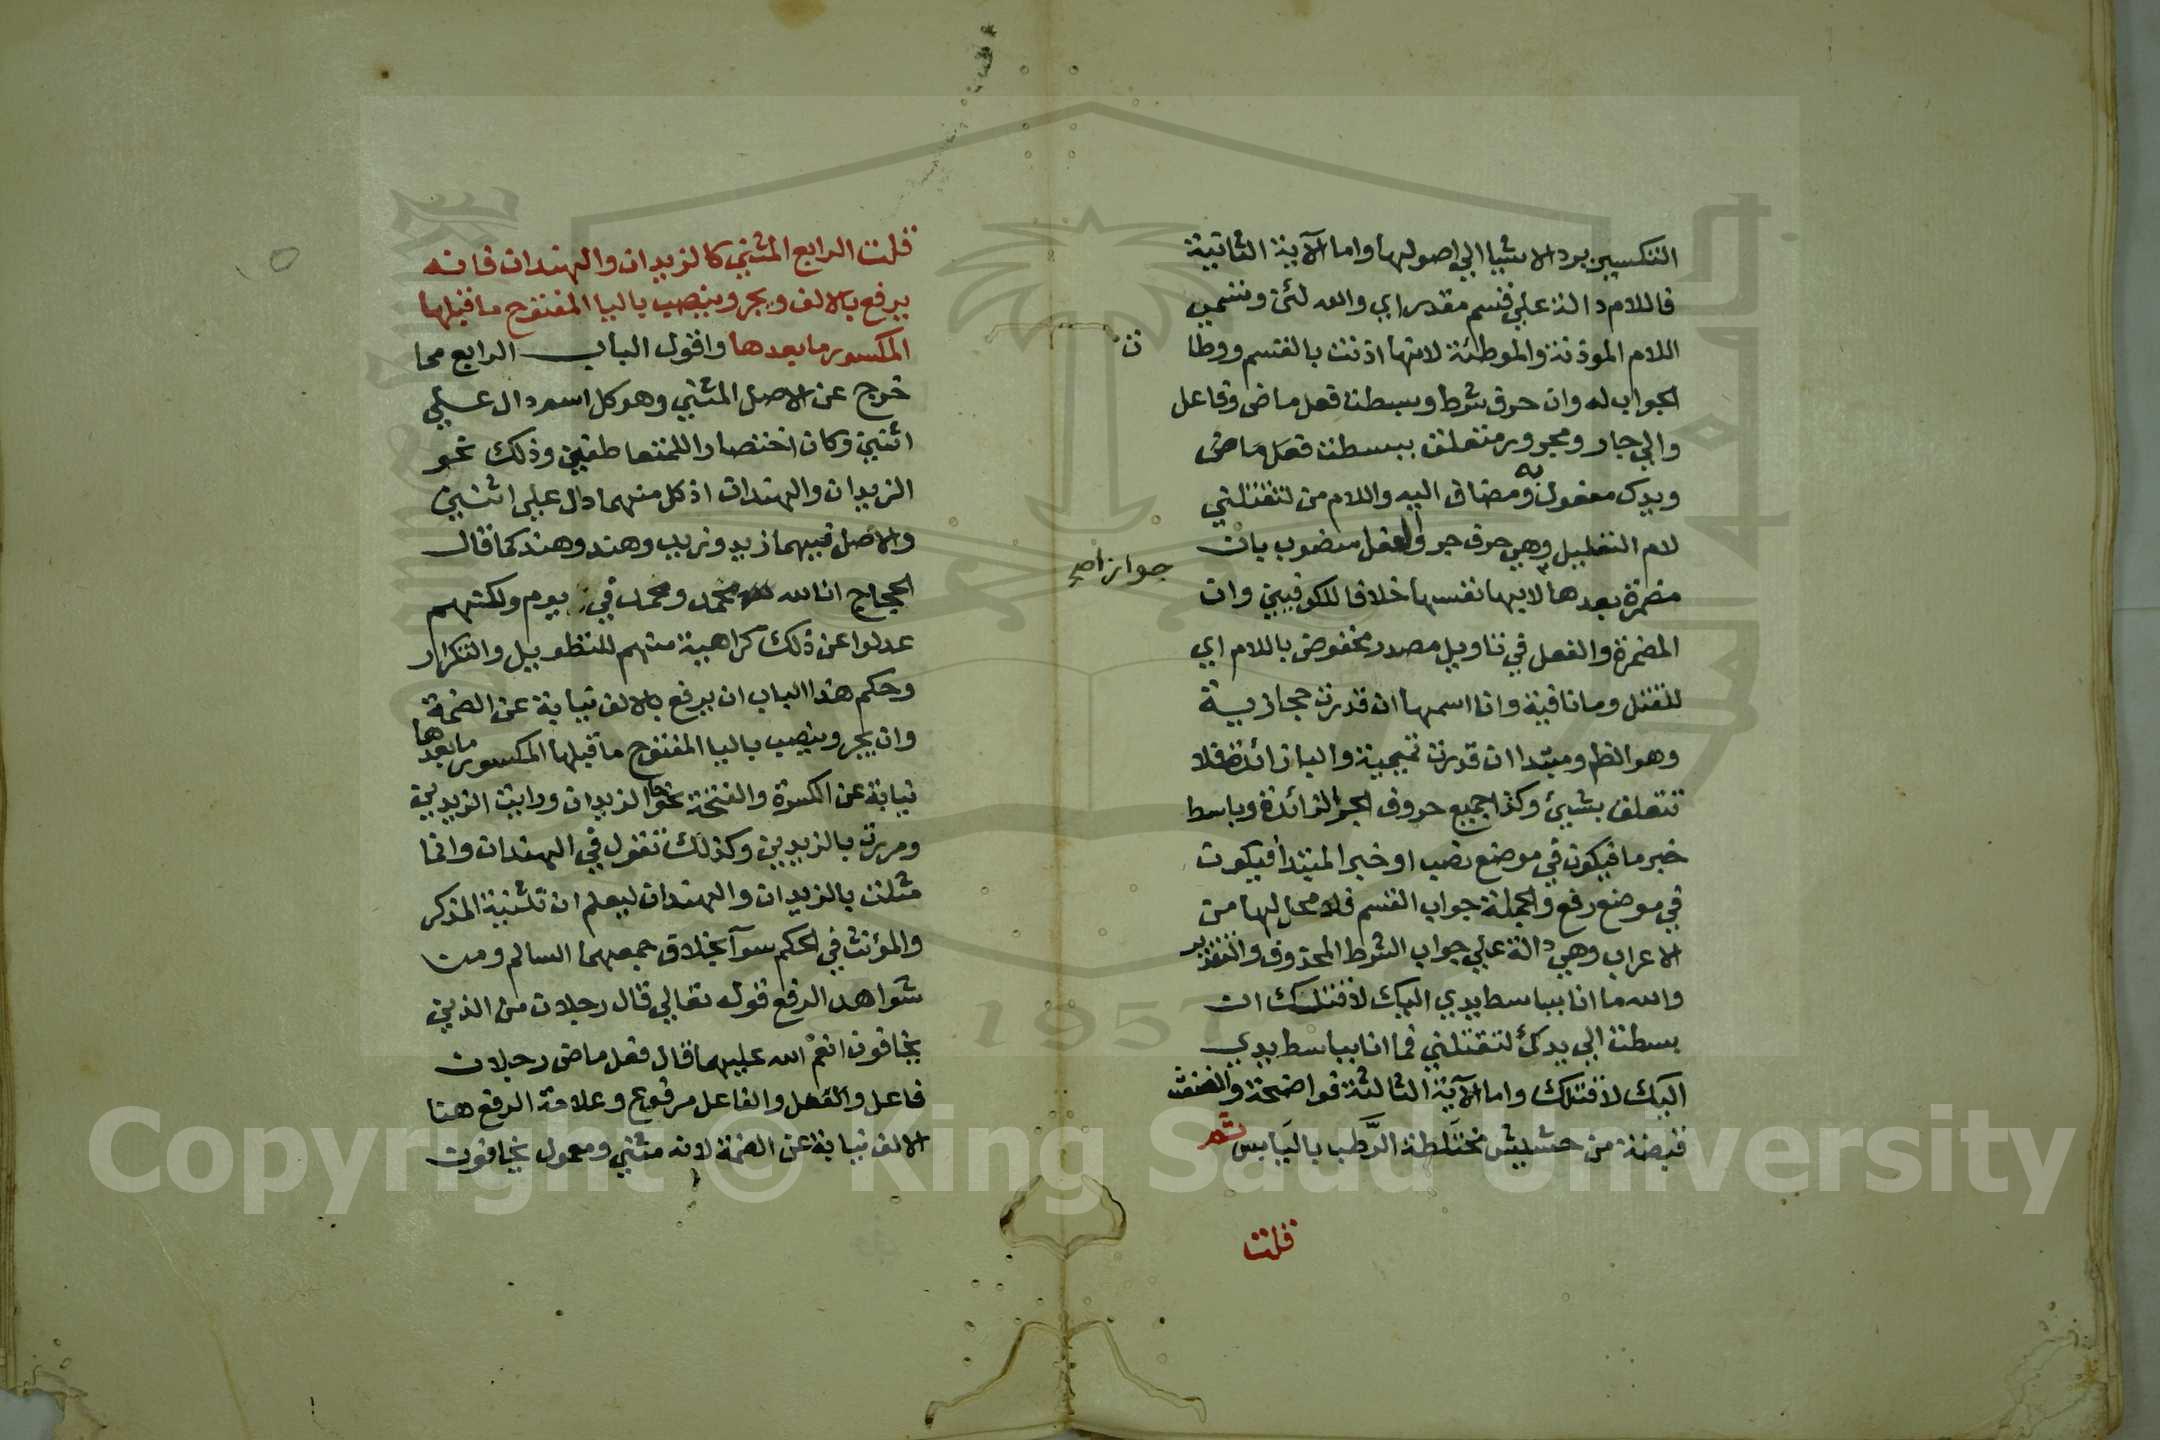 التكسير يرد الاشيا الي اصولها واما الآية الثانية
فاللام دالة علي قسم مقدر اي والله لئن وتسمي
اللام الموذنة والموطئة لانها اذنت بالقسم ووطا
ن
الجواب له وان حرف شرط وبسطت فعل ماض وفاعل
والي جار ومجرور متعلق ببسطت فعل ماض
ويدك مفعول به ومضاف اليه واللام من لتقتلني
لام التعليل وهي حرف جر والفعل منصوب بان
جوازا صح
مضمرة بعدها لا بها نفسها خلافا للكوفيين وان
المضمرة والفعل في تاويل مصدر مخفوض باللام اي
للقتل وما نافية وانا اسمها ان قدرت حجازية
وهو الظ ومبتدا ان قدرت تميمية والبا زائدة فلا
تتعلق بشيئ وكذا جميع حروف الجر الزائدة وباسط
خبر ما فيكون في موضع نصب او خبر المبتدأ فيكون
في موضع رفع والجملة جواب القسم فلا محل لها من
الاعراب وهي دالة علي جواب الشرط المحذوف والتقدير
والله ما انا بباسط يدي اليك لاقتلك ان
بسطت الي يدك لتقتلني فما انا بباسط يدي
اليك لاقتلك واما الآية الثالثة فواضحة والضغث
قبضة من حشيش مختَلطة الرَّطب باليَابس
قلت
قلت الرابع المثني كالزيدان والهندان فانه
يرفع بالالف ويجر وينصب باليا المفتوح ما قبلها
المكسور ما بعدها واقول الباب الرابع مما
خرج عن الاصل المثني وهو كل اسم دال علي
اثنين وكان اختصارا للمتعاطفين وذلك نحو
الزيدان والهندان اذ كل منهما دال علي اثنين
والاصل فيهما زيد وزيد وهند وهند كما قال
الحجاج انا لله محمد ومحمد في يوم ولكنهم
عدلوا عن ذلك كراهية منهم للتطويل والتكرار
وحكم هذا الباب ان يرفع بالالف نيابة عن الضمة
وان يجر وينصب باليا المفتوح ما قبلها المكسور ما بعدها
نيابة عن الكسرة والفتحة نحو جا الزيدان ورايت الزيدين
ومررت بالزيدين وكذلك تقول في الهندان وانما
مثلت بالزيدان والهندان ليعلم ان تثنية المذكر
والمؤنث في الحكم سوآ بخلاف جمعهما السالم ومن
شواهد الرفع قوله تعالي قال رجلان من الذين
يخافون انعم الله عليهما قال فعل ماض رجلان
فاعل والفعل والفاعل مرفوع وعلامة الرفع هنا
الالف نيابة عن الضمة لانه مثني ومعمول يخافون
1957
Copyright © King Saud University